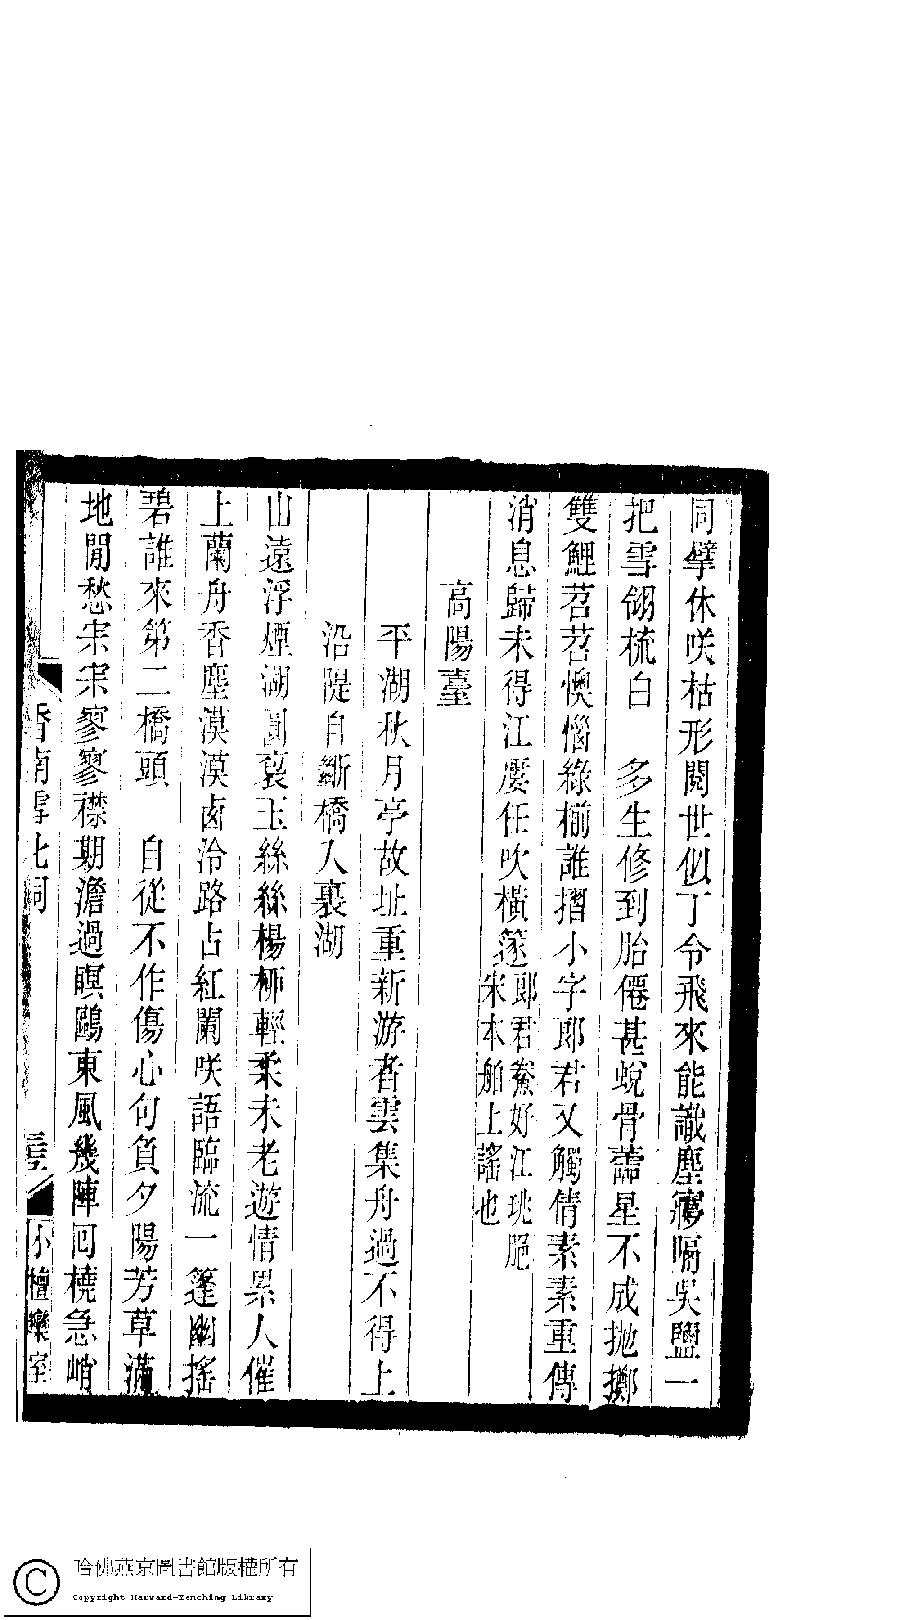 同擘休咲枯形閱世似丁令飛來能識塵寰隔吳鹽一
把雪翎梳白　多生修到胎僊甚蛻骨蘦星不成拋擲
雙鯉苕苕懊惱綠櫥誰摺小字郎君又觸倩素素重傳
消息歸未得江廔任吹橫篴郎君鮝好江珧脆宋本舶上謠也
高陽臺
平湖秋月亭故址重新游者雲集舟過不得上
沿隄自斷橋入裏湖
山遠浮煙湖圓裛玉絲絲楊桺輕柔未老遊情累人催
上蘭舟香塵漠漠鹵泠路占紅闌咲語臨流一篷幽搖
碧誰來第二橋頭　自從不作傷心句負夕陽芳草滿
地閒愁宋宋寥寥襟期澹過瞑鷗東風幾陣回橈急峭
香南雪北詞
小檀欒室
哈佛燕京圖書館版權所有
Copyright Harvard-Yenching Library